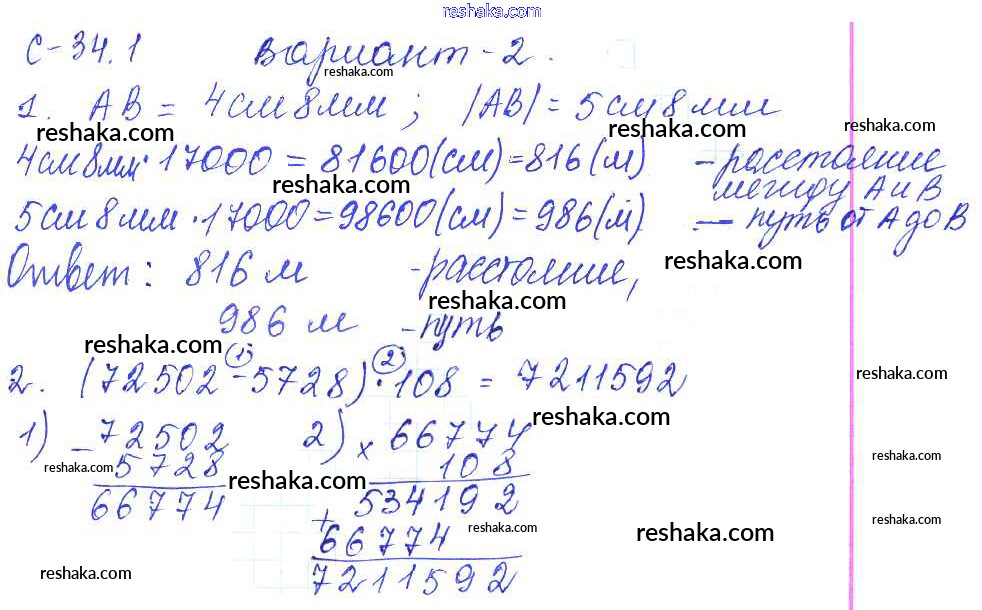 reshaka.com
С-34.1 Вариант-2.
reshaka.com
1. AB = 4 см 8 мм; |AB| = 5 см 8 мм
reshaka.com reshaka.com reshaka.com
4 см 8 мм · 17000 = 81600 (см) = 816 (м) - расстояние
между А и В
reshaka.com
5 см 8 мм · 17000 = 98600 (см) = 986 (м) — путь от А до В
reshaka.com
Ответ: 816 м - расстояние,
reshaka.com reshaka.com
986 м - путь
reshaka.com
1) 2)
2. (72502 - 5728) · 108 = 7211592
reshaka.com
reshaka.com
1) - 72502 2) × 66774
5728 108
reshaka.com reshaka.com reshaka.com
66774 534192
reshaka.com reshaka.com reshaka.com
+ 66774
7211592
reshaka.com